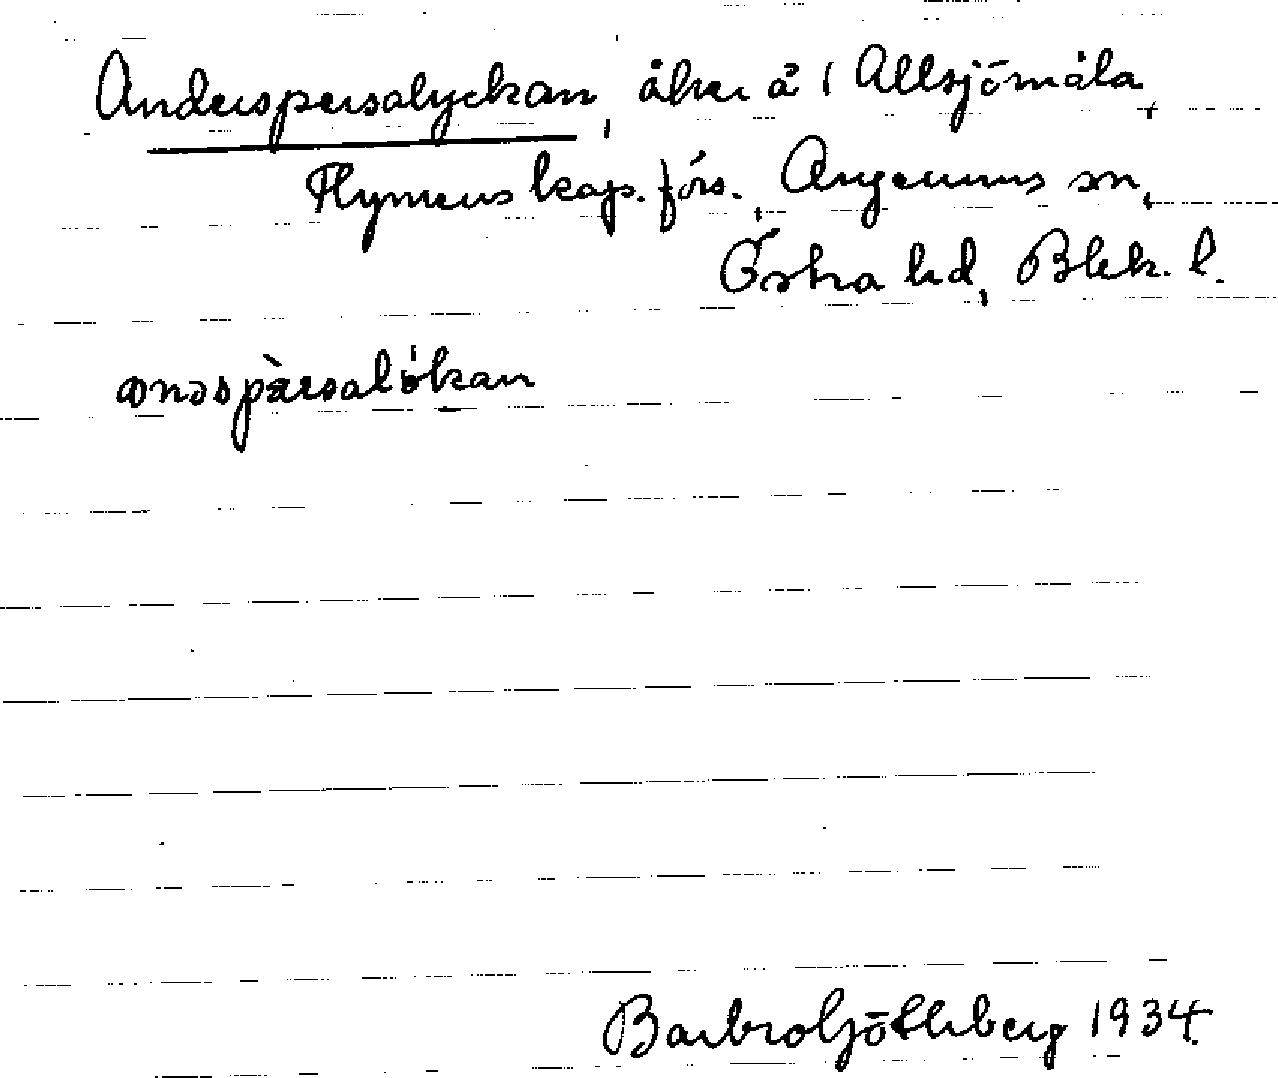 Anderspersalyckan, åker å 1 Allsjömåla,
Flymens kap. förs., Augerums sn,
Östra hd, Blek. l.
Barbro Götlberg 1934.